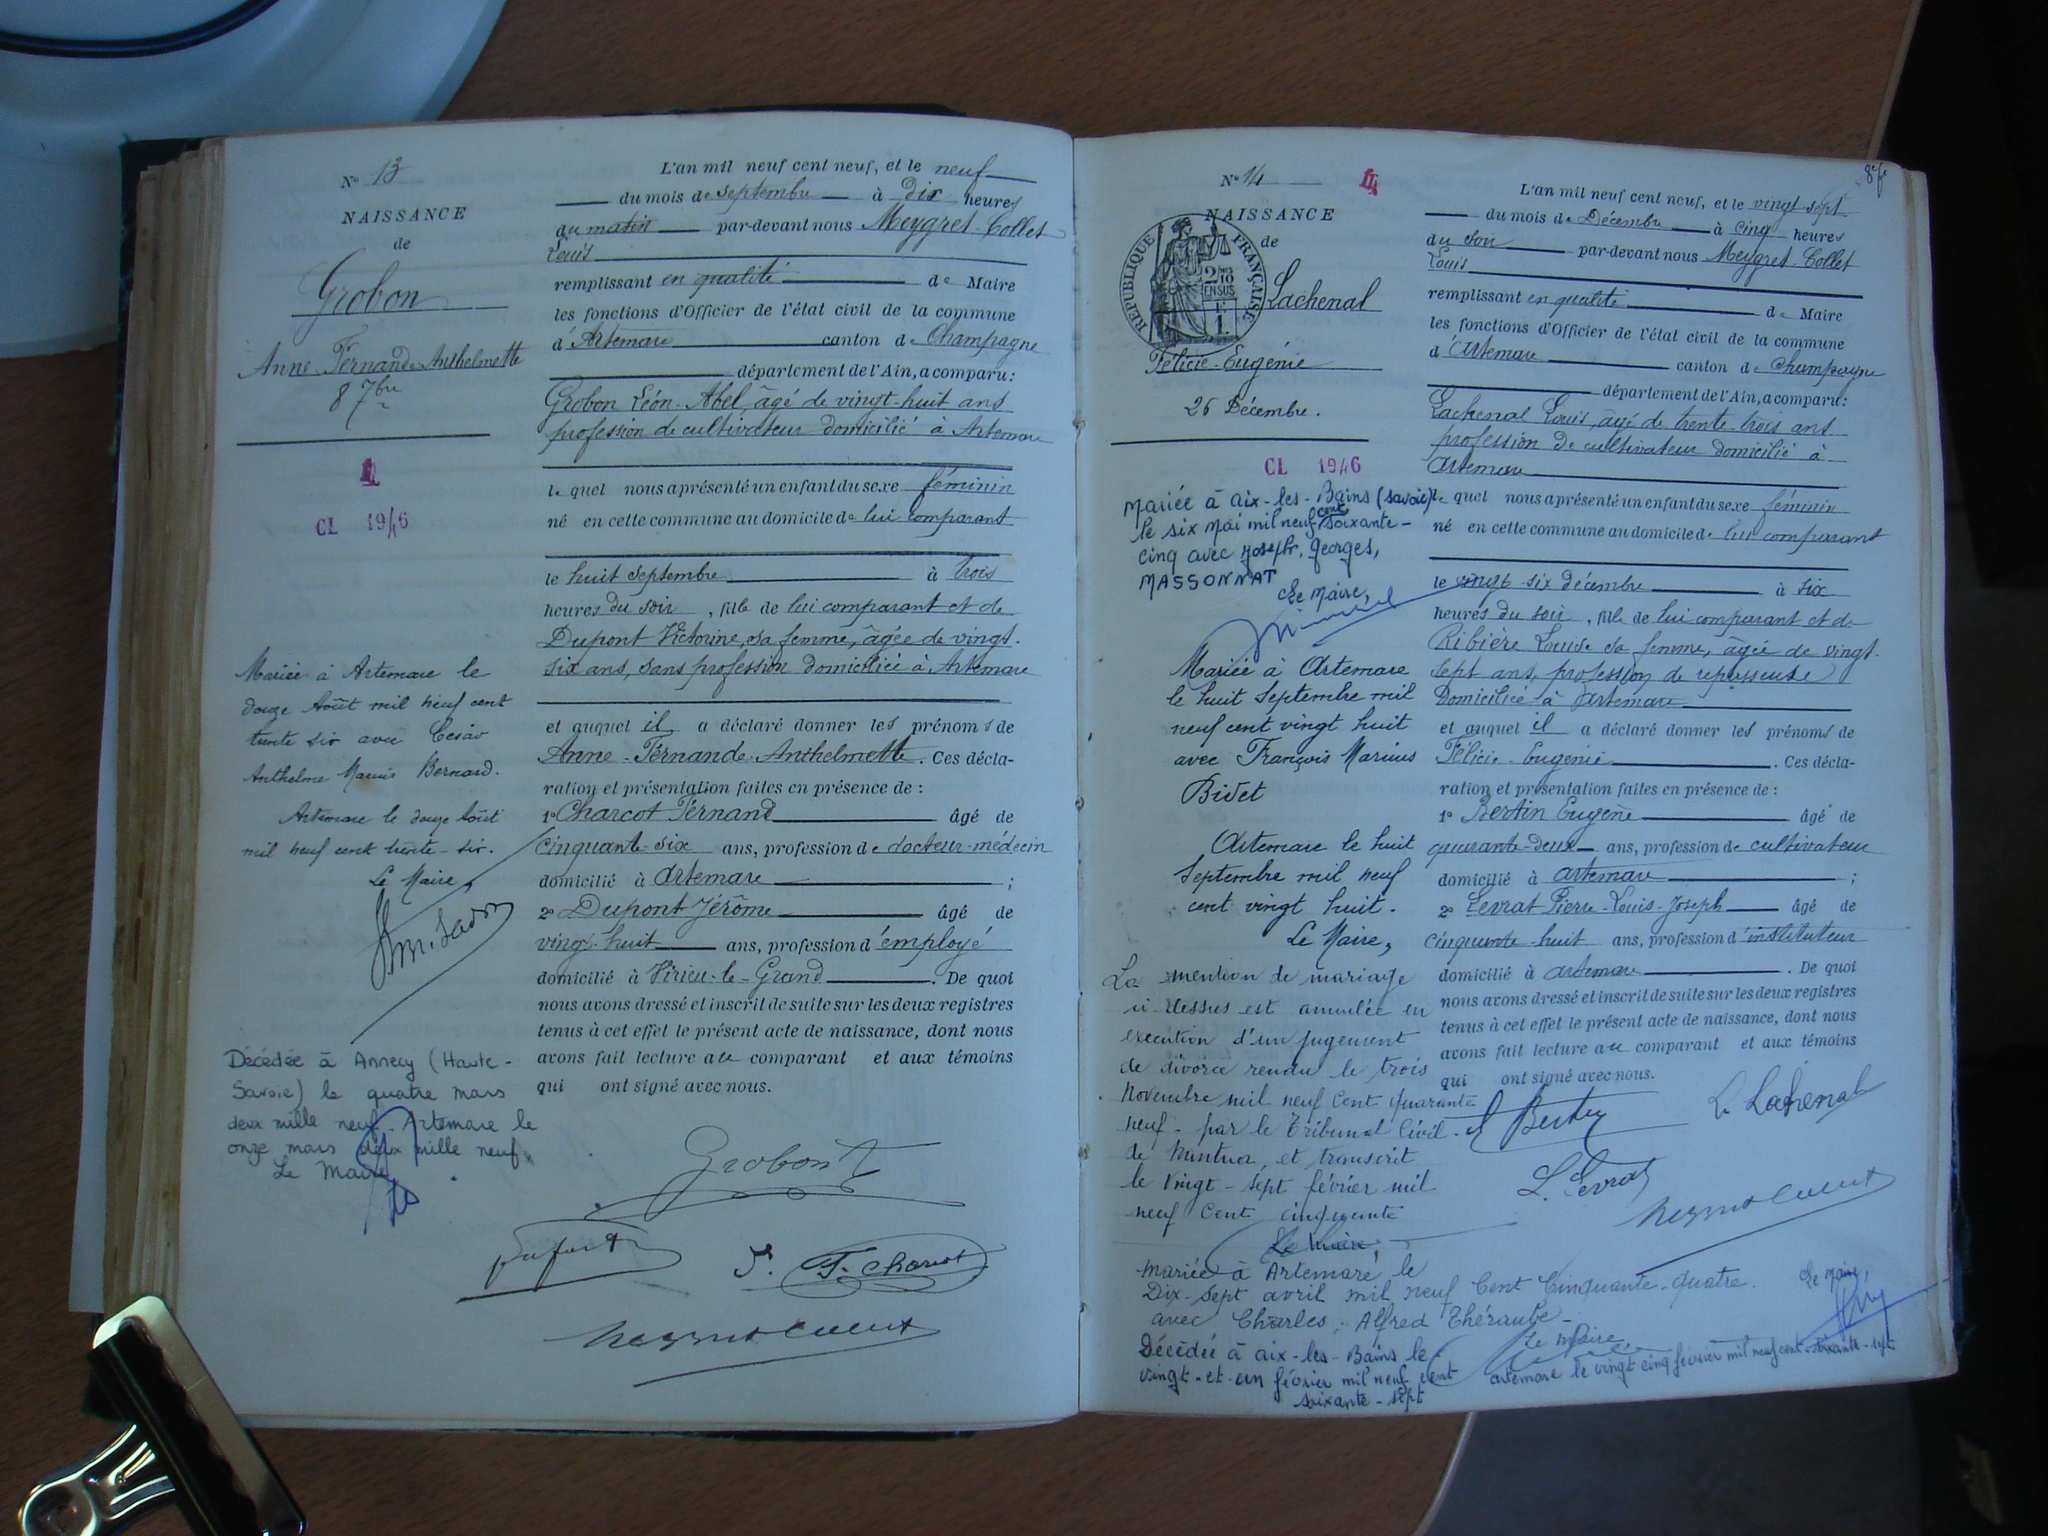 Nº 13
NAISSANCE
de
Grobon
Anne-Fernande-Anthelmette
8 7bre
CL 1946
Mariée à Artemare le
douze Août mil neuf cent
trente six avec César
Anthelme Marius Bernard.
Artemare le douze Août
mil neuf cent trente-six.
Le Maire,
Décédée à Annecy (Haute-
Savoie) le quatre mars
deux mille neuf. Artemare le
onze mars deux mille neuf
Le Maire
L'an mil neuf cent neuf, et le neuf
du mois de septembre à dix heures
du matin par-devant nous Meygret-Collet
Louis
remplissant en qualité de Maire
les fonctions d'Officier de l'état civil de la commune
d'Artemare canton de Champagne
département de l'Ain, a comparu:
Grobon Léon-Abel, âgé de vingt-huit ans
profession de cultivateur domicilié à Artemare
le quel nous a présenté un enfant du sexe féminin
né en cette commune au domicile de lui comparant
le huit septembre à trois
heures du soir, fille de lui comparant et de
Dupont Victorine, sa femme, âgée de vingt-
six ans, sans profession domiciliée à Artemare
et auquel il a déclaré donner les prénoms de
Anne-Fernande-Anthelmette. Ces décla-
ration et présentation faites en présence de :
1º Charcot Fernand âgé de
cinquante-six ans, profession de docteur-médecin
domicilié à Artemare ;
2º Dupont Jérôme âgé de
vingt-huit ans, profession d'employé
domicilié à Virieu-le-Grand. De quoi
nous avons dressé et inscrit de suite sur les deux registres
tenus à cet effet le présent acte de naissance, dont nous
avons fait lecture au comparant et aux témoins
qui ont signé avec nous.
Grobon
F. Charcot
Nº 14
NAISSANCE
de
RÉPUBLIQUE FRANÇAISE
2/10 EN SUS
Lachenal
Félicie-Eugénie
26 Décembre.
CL 1946
Mariée à Aix-les-Bains (Savoie)
le six mai mil neuf cent soixante-
cinq avec Joseph, Georges,
MASSONNAT
Le Maire,
Mariée à Artemare
le huit Septembre mil
neuf cent vingt huit
avec François Marius
Bidet
Artemare le huit
Septembre mil neuf
cent vingt huit.
Le Maire,
La mention de mariage
ci-dessus est annulée en
exécution d'un jugement
de divorce rendu le trois
Novembre mil neuf Cent quarante
neuf - par le Tribunal Civil
de Nantua, et transcrit
le Vingt-sept février mil
neuf Cent cinquante
Le Maire,
Mariée à Artemare le
Dix-sept avril mil neuf Cent Cinquante-quatre
avec Charles, Alfred Théraube
Le Maire
Décédée à Aix-les-Bains le
vingt-et-un février mil neuf cent
soixante-sept
L'an mil neuf cent neuf, et le vingt-sept
du mois de Décembre à cinq heures
du soir par-devant nous Meygret-Collet
Louis
remplissant en qualité de Maire
les fonctions d'Officier de l'état civil de la commune
d'Artemare canton de Champagne
département de l'Ain, a comparu:
Lachenal Louis, âgé de trente-trois ans
profession de cultivateur domicilié à
Artemare
le quel nous a présenté un enfant du sexe féminin
né en cette commune au domicile de lui comparant
le vingt-six décembre à six
heures du soir, fille de lui comparant et de
Ribière Louise sa femme, âgée de vingt-
sept ans, profession de repasseuse
Domiciliée à Artemare
et auquel il a déclaré donner les prénoms de
Félicie-Eugénie. Ces décla-
ration et présentation faites en présence de :
1º Bertin Eugène âgé de
quarante-deux ans, profession de cultivateur
domicilié à Artemare ;
2º Levrat Pierre-Louis-Joseph âgé de
cinquante-huit ans, profession d'instituteur
domicilié à Artemare. De quoi
nous avons dressé et inscrit de suite sur les deux registres
tenus à cet effet le présent acte de naissance, dont nous
avons fait lecture au comparant et aux témoins
qui ont signé avec nous.
L. Lachenal
L. Levrat
Le Maire,
Artemare le vingt cinq février mil neuf cent soixante-sept